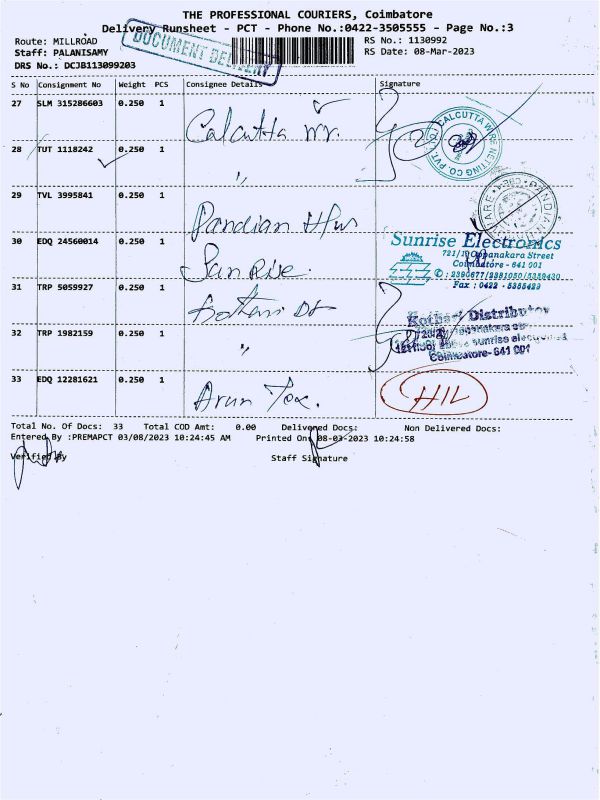 THE PROFESSIONAL COURIERS, Coimbatore
Delivery Runsheet - PCT - Phone No.:0422-3505555 - Page No.:3
Route: MILLROAD
RS No.: 1130992
Staff: PALANISAMY
RS Date: 08-Mar-2023
DRS No.: DCJB113099203
DOCUMENT DELIVERY
S No Consignment No Weight PCS Consignee Details Signature
27 SLM 315286603 0.250 1 Calcutta Wr.
CALCUTTA WIRE NETTING CO. PVT.
28 TUT 1118242 0.250 1 "
29 TVL 3995841 0.250 1 Pandian H/w
PANDIAN
30 EDQ 24560014 0.250 1 Sun Rise.
Sunrise Electronics
721/19 Oppanakara Street
Coimbatore - 641 001
Fax : 0422 - 5355429
31 TRP 5059927 0.250 1 Kothari Dt
Kothari Distributor
sunrise
Coimbatore- 641 001
32 TRP 1982159 0.250 1 "
33 EDQ 12281621 0.250 1 Arun Tex.
Total No. Of Docs: 33 Total COD Amt: 0.00 Delivered Docs: Non Delivered Docs:
Entered By :PREMAPCT 03/08/2023 10:24:45 AM Printed On: 08-03-2023 10:24:58
Verified By
Staff Signature